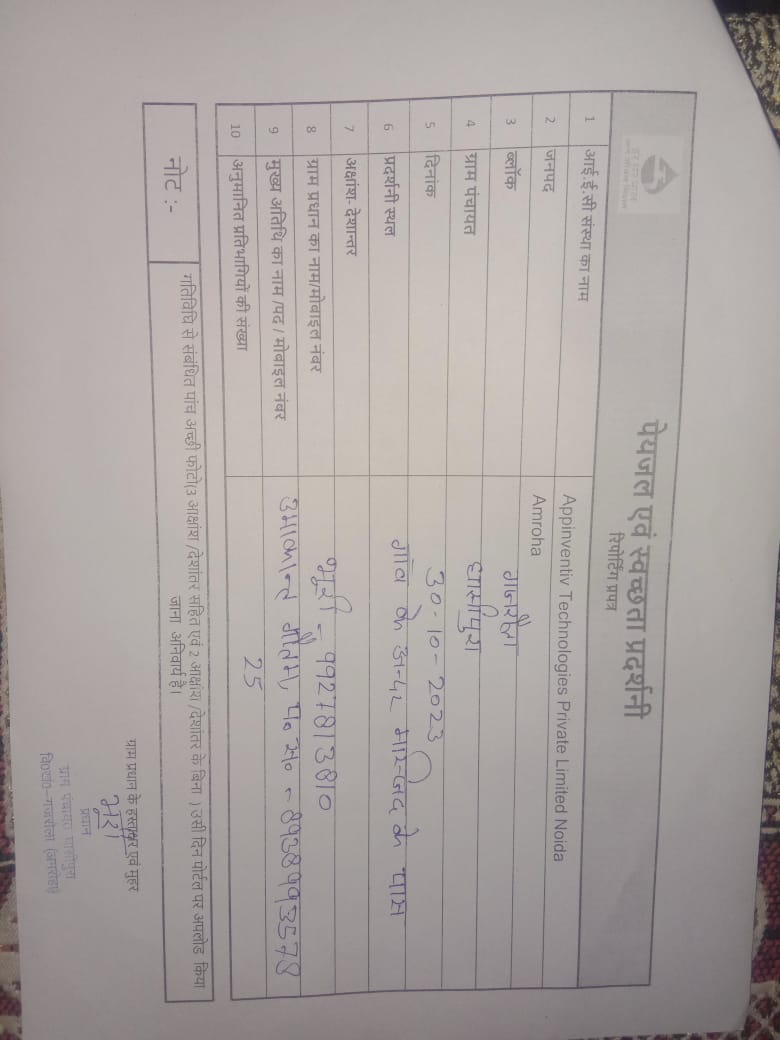 पेयजल एवं स्वच्छता प्रदर्शनी
रिपोर्टिंग प्रपत्र
1 आई.ई.सी संस्था का नाम Appinventiv Technologies Private Limited Noida
2 जनपद Amroha
3 ब्लॉक गजरौला
4 ग्राम पंचायत
5 दिनांक 30-10-2023
6 प्रदर्शनी स्थल गाँव के अन्दर मस्जिद के पास
7 अक्षांश- देशान्तर
8 ग्राम प्रधान का नाम/मोबाइल नंबर भूरी - 9927813810
9 मुख्य अतिथि का नाम /पद / मोबाइल नंबर उमाकान्त गौतम, पं० स० -
10 अनुमानित प्रतिभागियों की संख्या 25
नोट :- गतिविधि से संबंधित पांच अच्छी फोटो(3 आक्षांश /देशांतर सहित एवं 2 आक्षांश /देशांतर के बिना ) उसी दिन पोर्टल पर अपलोड किया
जाना अनिवार्य है।
ग्राम प्रधान के हस्ताक्षर एवं मुहर
भूरी
प्रधान
ग्राम पंचायत
वि०ख०-गजरौला (अमरोहा)